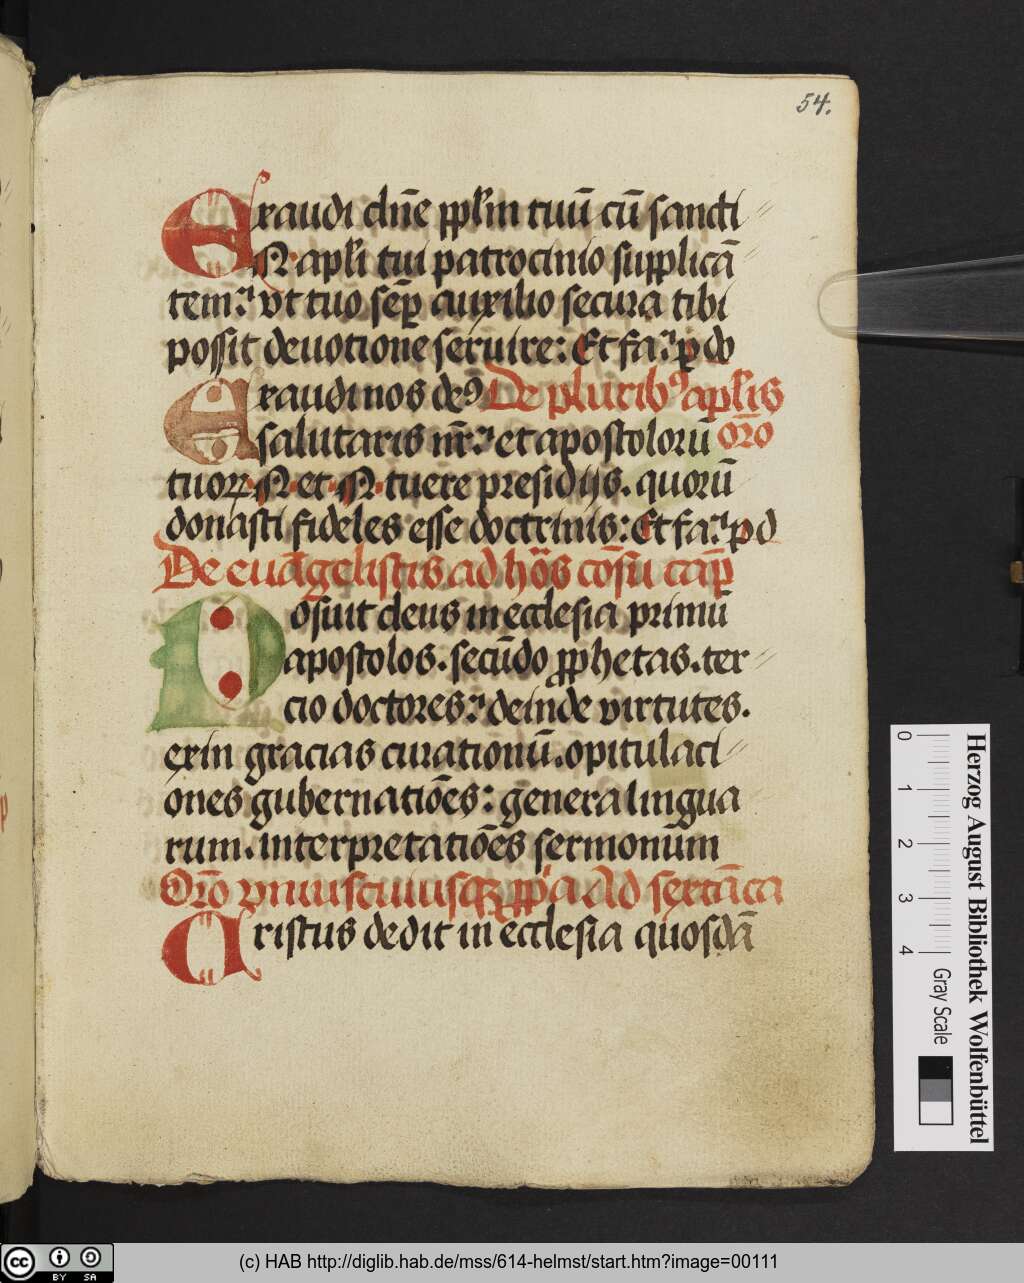 54.
Exaudi dn̄e pp̄lm tuū cū sancti
N apl̄i tui patrocinio supplicā
tem: vt tuo sēp auxilio secura tibi
possit deuotione seruire: Et fa: p do
Exaudi nos de⁹ De plurib⁹ apl̄is
salutaris nr̄: et apostolorū oro
tuoꝝ N et N tuere presidijs. quorū
donasti fideles esse doctrinis: Et fa: p d
De euāgelistis ad hōs cōsu cap̄
Posuit deus in ecclesia primū
apostolos. secūdo ꝓphetas. ter
cio doctores: deinde virtutes.
exin gracias curationū. opitulaci
ones gubernatiōes: genera lingua
rum. interpretatiōes sermonūm
Orō vniuscuiusqꝫ ꝓpa Ad sextā ca
Cristus dedit in ecclesia quosdā
Herzog August Bibliothek Wolfenbüttel
0 1 2 3 4
Gray Scale
cc BY SA
(c) HAB http://diglib.hab.de/mss/614-helmst/start.htm?image=00111